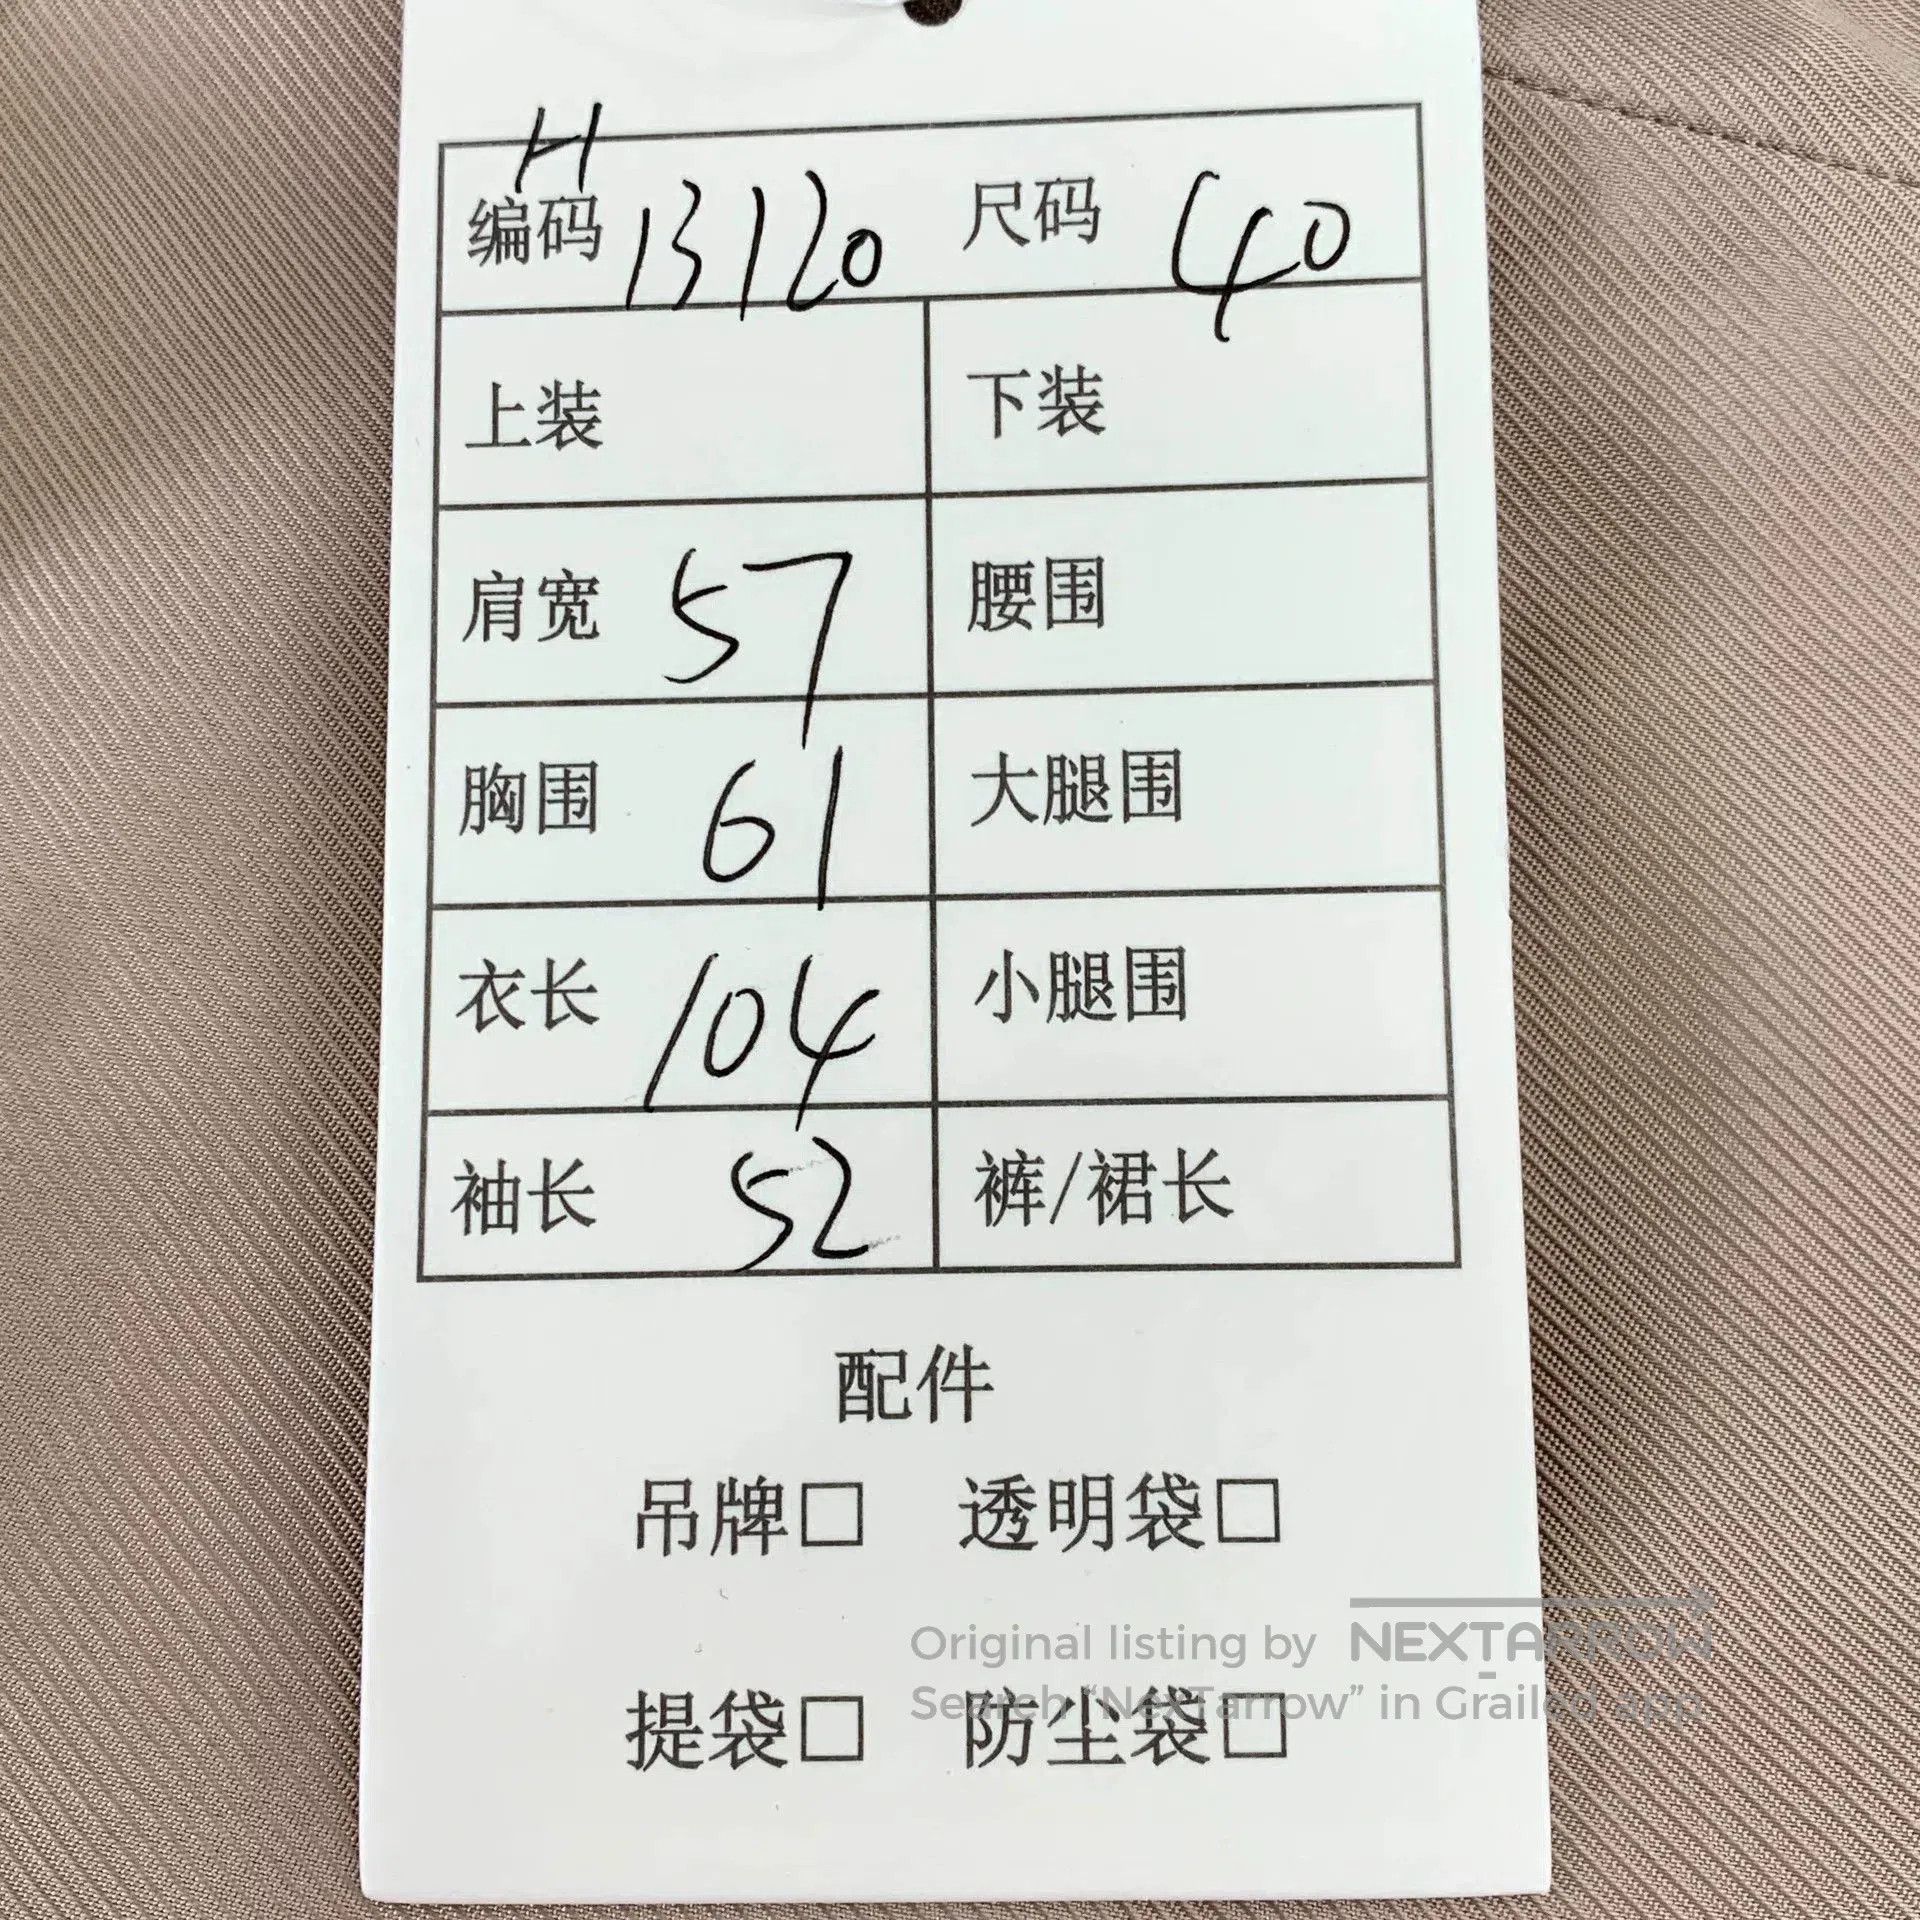 H
编码 13120 尺码 40
上装 下装
肩宽 57 腰围
胸围 61 大腿围
衣长 104 小腿围
袖长 52 裤/裙长
配件
吊牌□ 透明袋□
Original listing by NEXTARROW
Search “NexTarrow” in Grailed app
提袋□ 防尘袋□